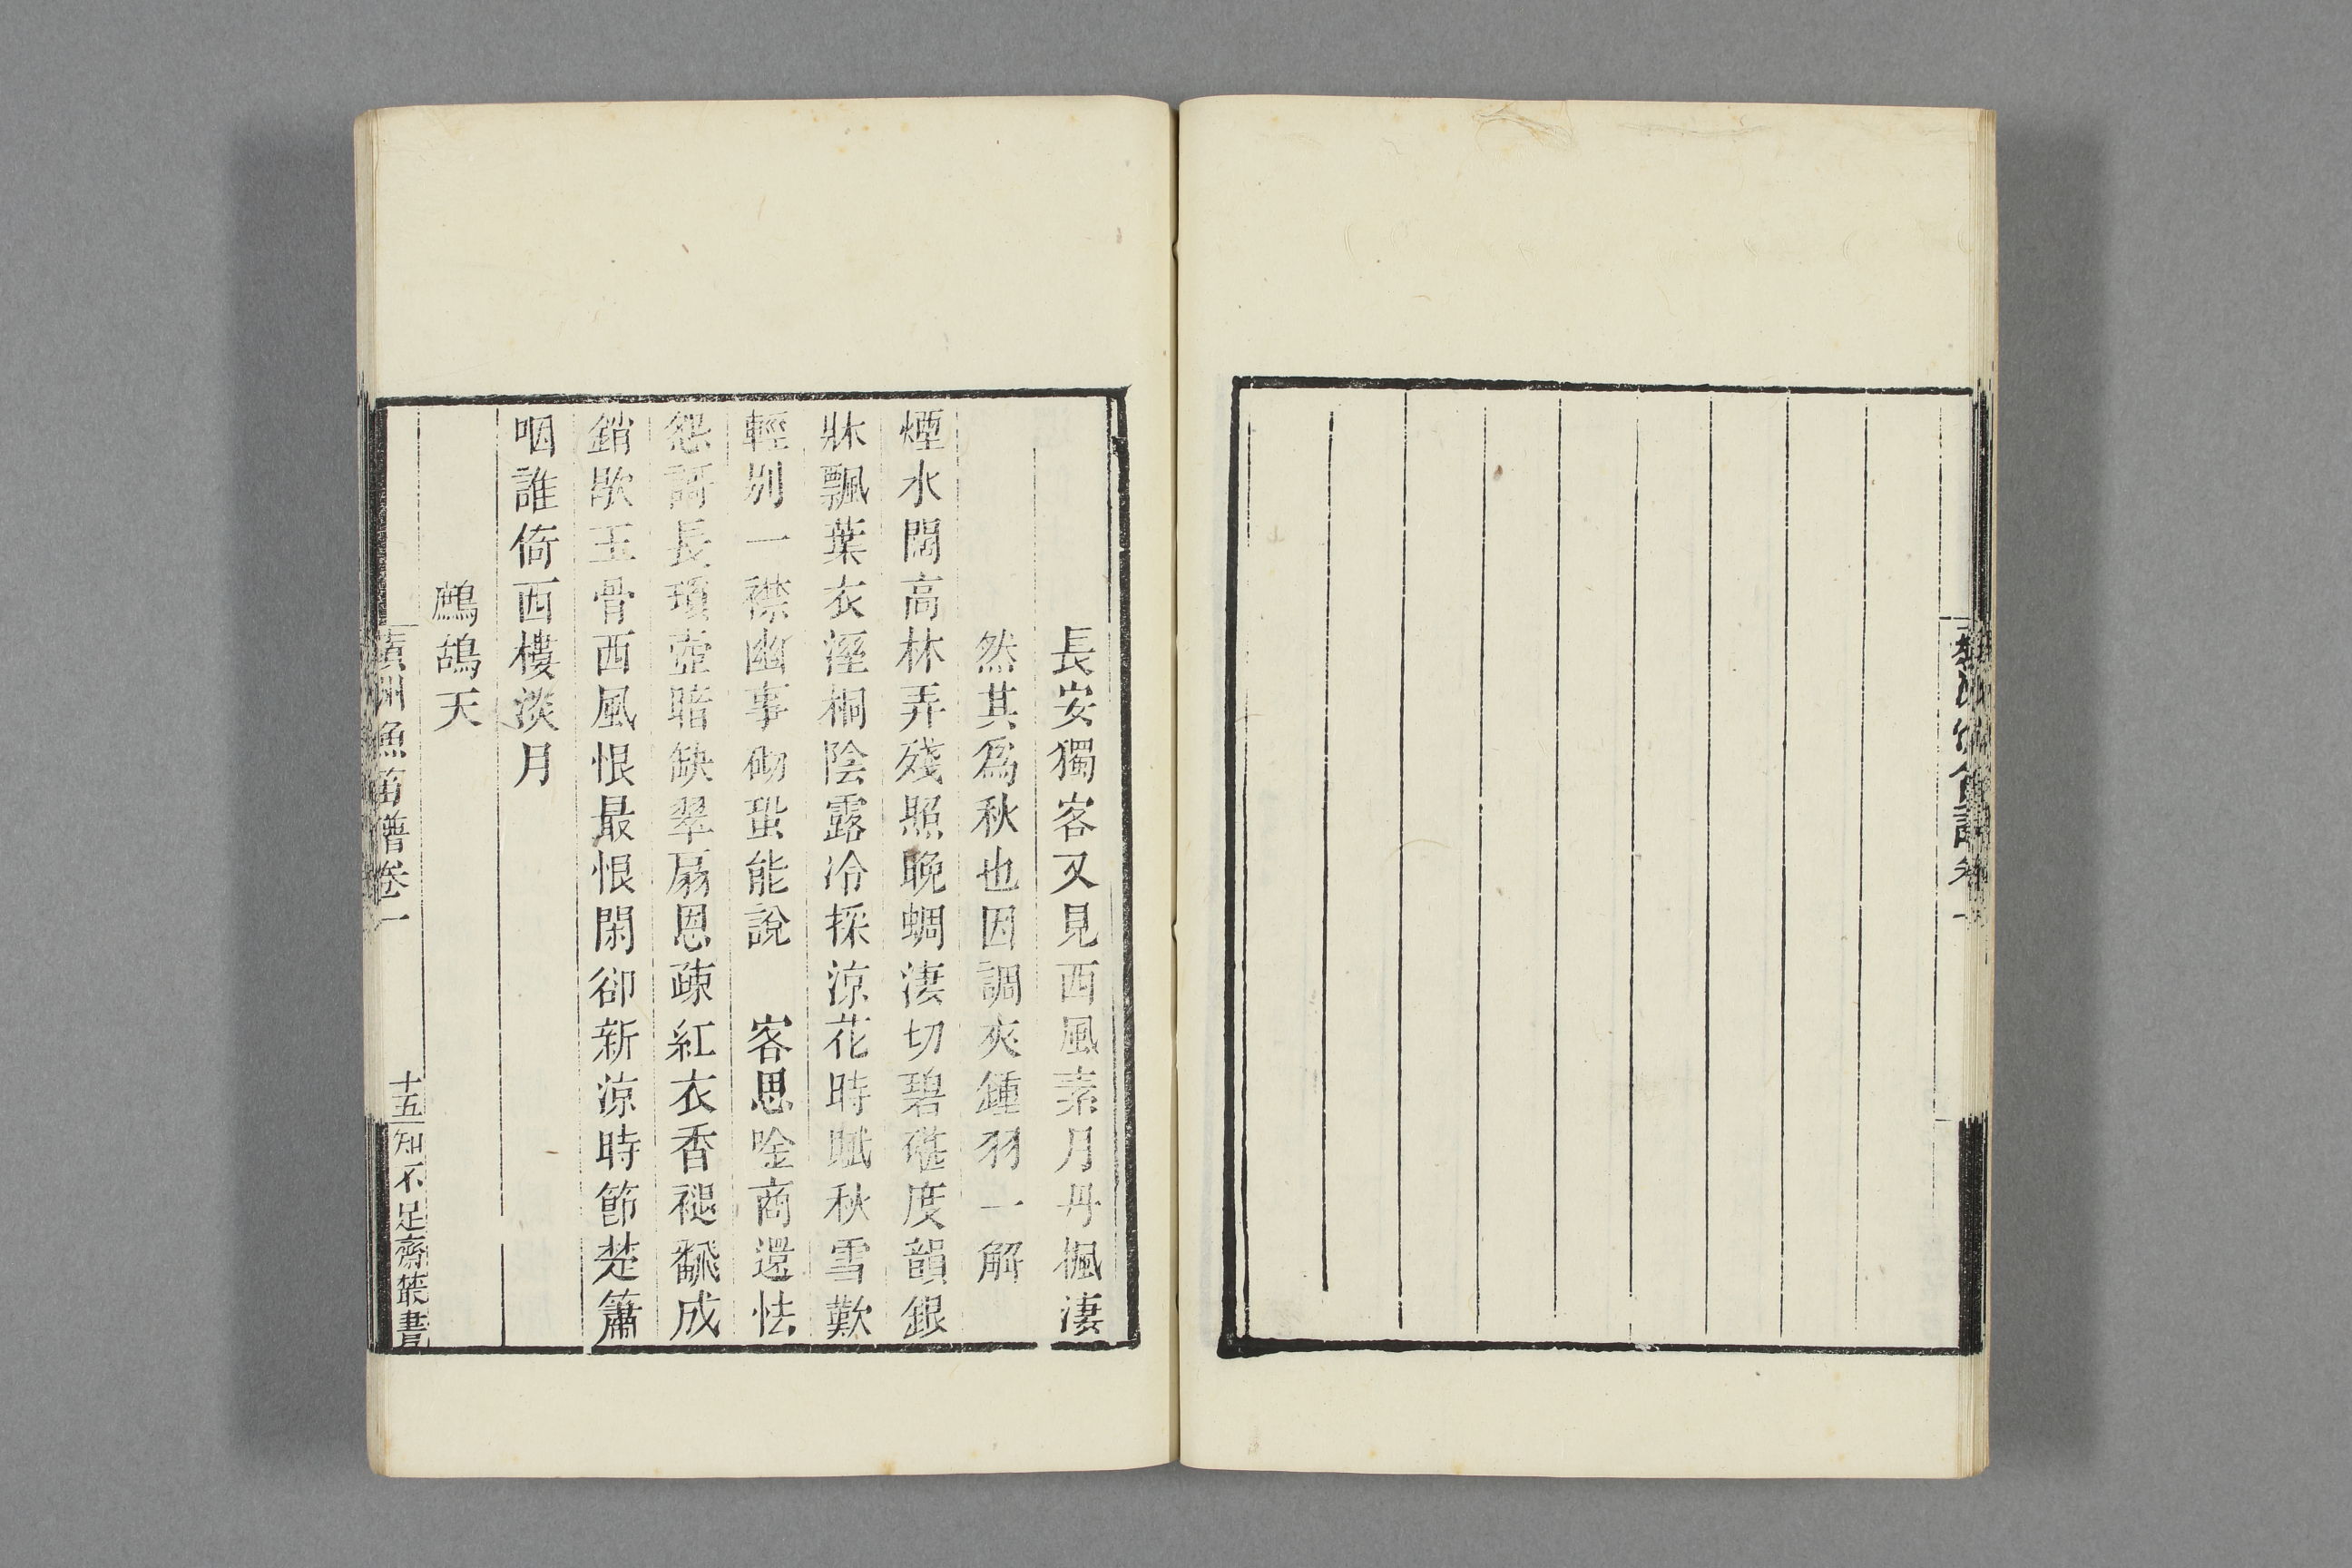 長安獨客又見西風素月丹楓淒
然其爲秋也因調夾鍾羽一解
煙水闊高林弄殘照晚蜩淒切碧碪度韻銀
牀飄葉衣溼桐陰露冷採涼花時賦秋雪歎
輕別一襟幽事砌蛩能說　客思唫商還怯
怨謌長瓊壺暗缺翠扇恩疎紅衣香褪飜成
銷歇玉骨西風恨最恨閑卻新涼時節楚簫
咽誰倚西樓淡月
鷓鴣天
蘋洲漁笛譜卷一
十五
知不足齋叢書